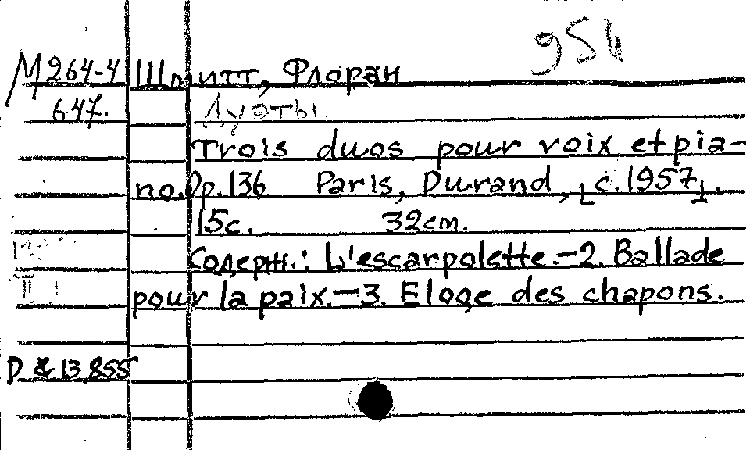 954
М 264-4 Шмитт, Флоран
647. Дуэты
Trois duos pour voix et pia-
no. Op. 136 Paris, Durand, [c. 1957].
15с. 32cm.
Содерж.: L'escarpolette.-2. Ballade
pour la paix.-3. Eloge des chapons.
D & 13855